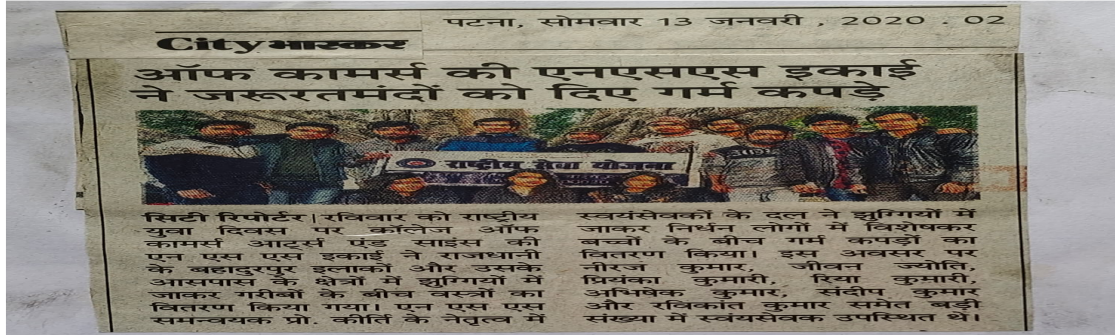 पटना, सोमवार 13 जनवरी , 2020 . 02
City भास्कर
ऑफ कामर्स की एनएसएस इकाई
ने जरूरतमंदों को दिए गर्म कपड़े
राष्ट्रीय सेवा योजना
सिटी रिपोर्टर|रविवार को राष्ट्रीय
युवा दिवस पर कॉलेज ऑफ
कामर्स आर्ट्स एंड साइंस की
एन एस एस इकाई ने राजधानी
के बहादुरपुर इलाकों और उसके
आसपास के क्षेत्रों में झुग्गियों में
जाकर गरीबों के बीच वस्त्रों का
वितरण किया गया। एन एस एस
समन्वयक प्रो. कीर्ति के नेतृत्व में
स्वयंसेवकों के दल ने झुग्गियों में
जाकर निर्धन लोगों में विशेषकर
बच्चों के बीच गर्म कपड़ों का
वितरण किया। इस अवसर पर
नीरज कुमार, जीवन ज्योति,
प्रियंका कुमारी, रिया कुमारी,
अभिषेक कुमार, संदीप कुमार
और रविकांत कुमार समेत बड़ी
संख्या में स्वंयसेवक उपस्थित थे।